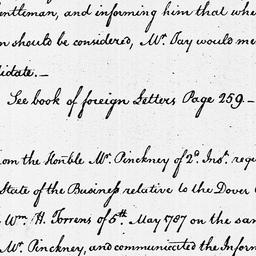 entleman, and informing him that whe
n should be considered, Mr. Jay would me
didate.—
See book of foreign Letters Page 259—
om the Honble Mr. Pinckney of 2d. Inst. requ
State of the Business relative to the Dover C
Wm. H. Torrens of 5th. May 1787 on the sam
Mr. Pinckney, and communicated the Inform